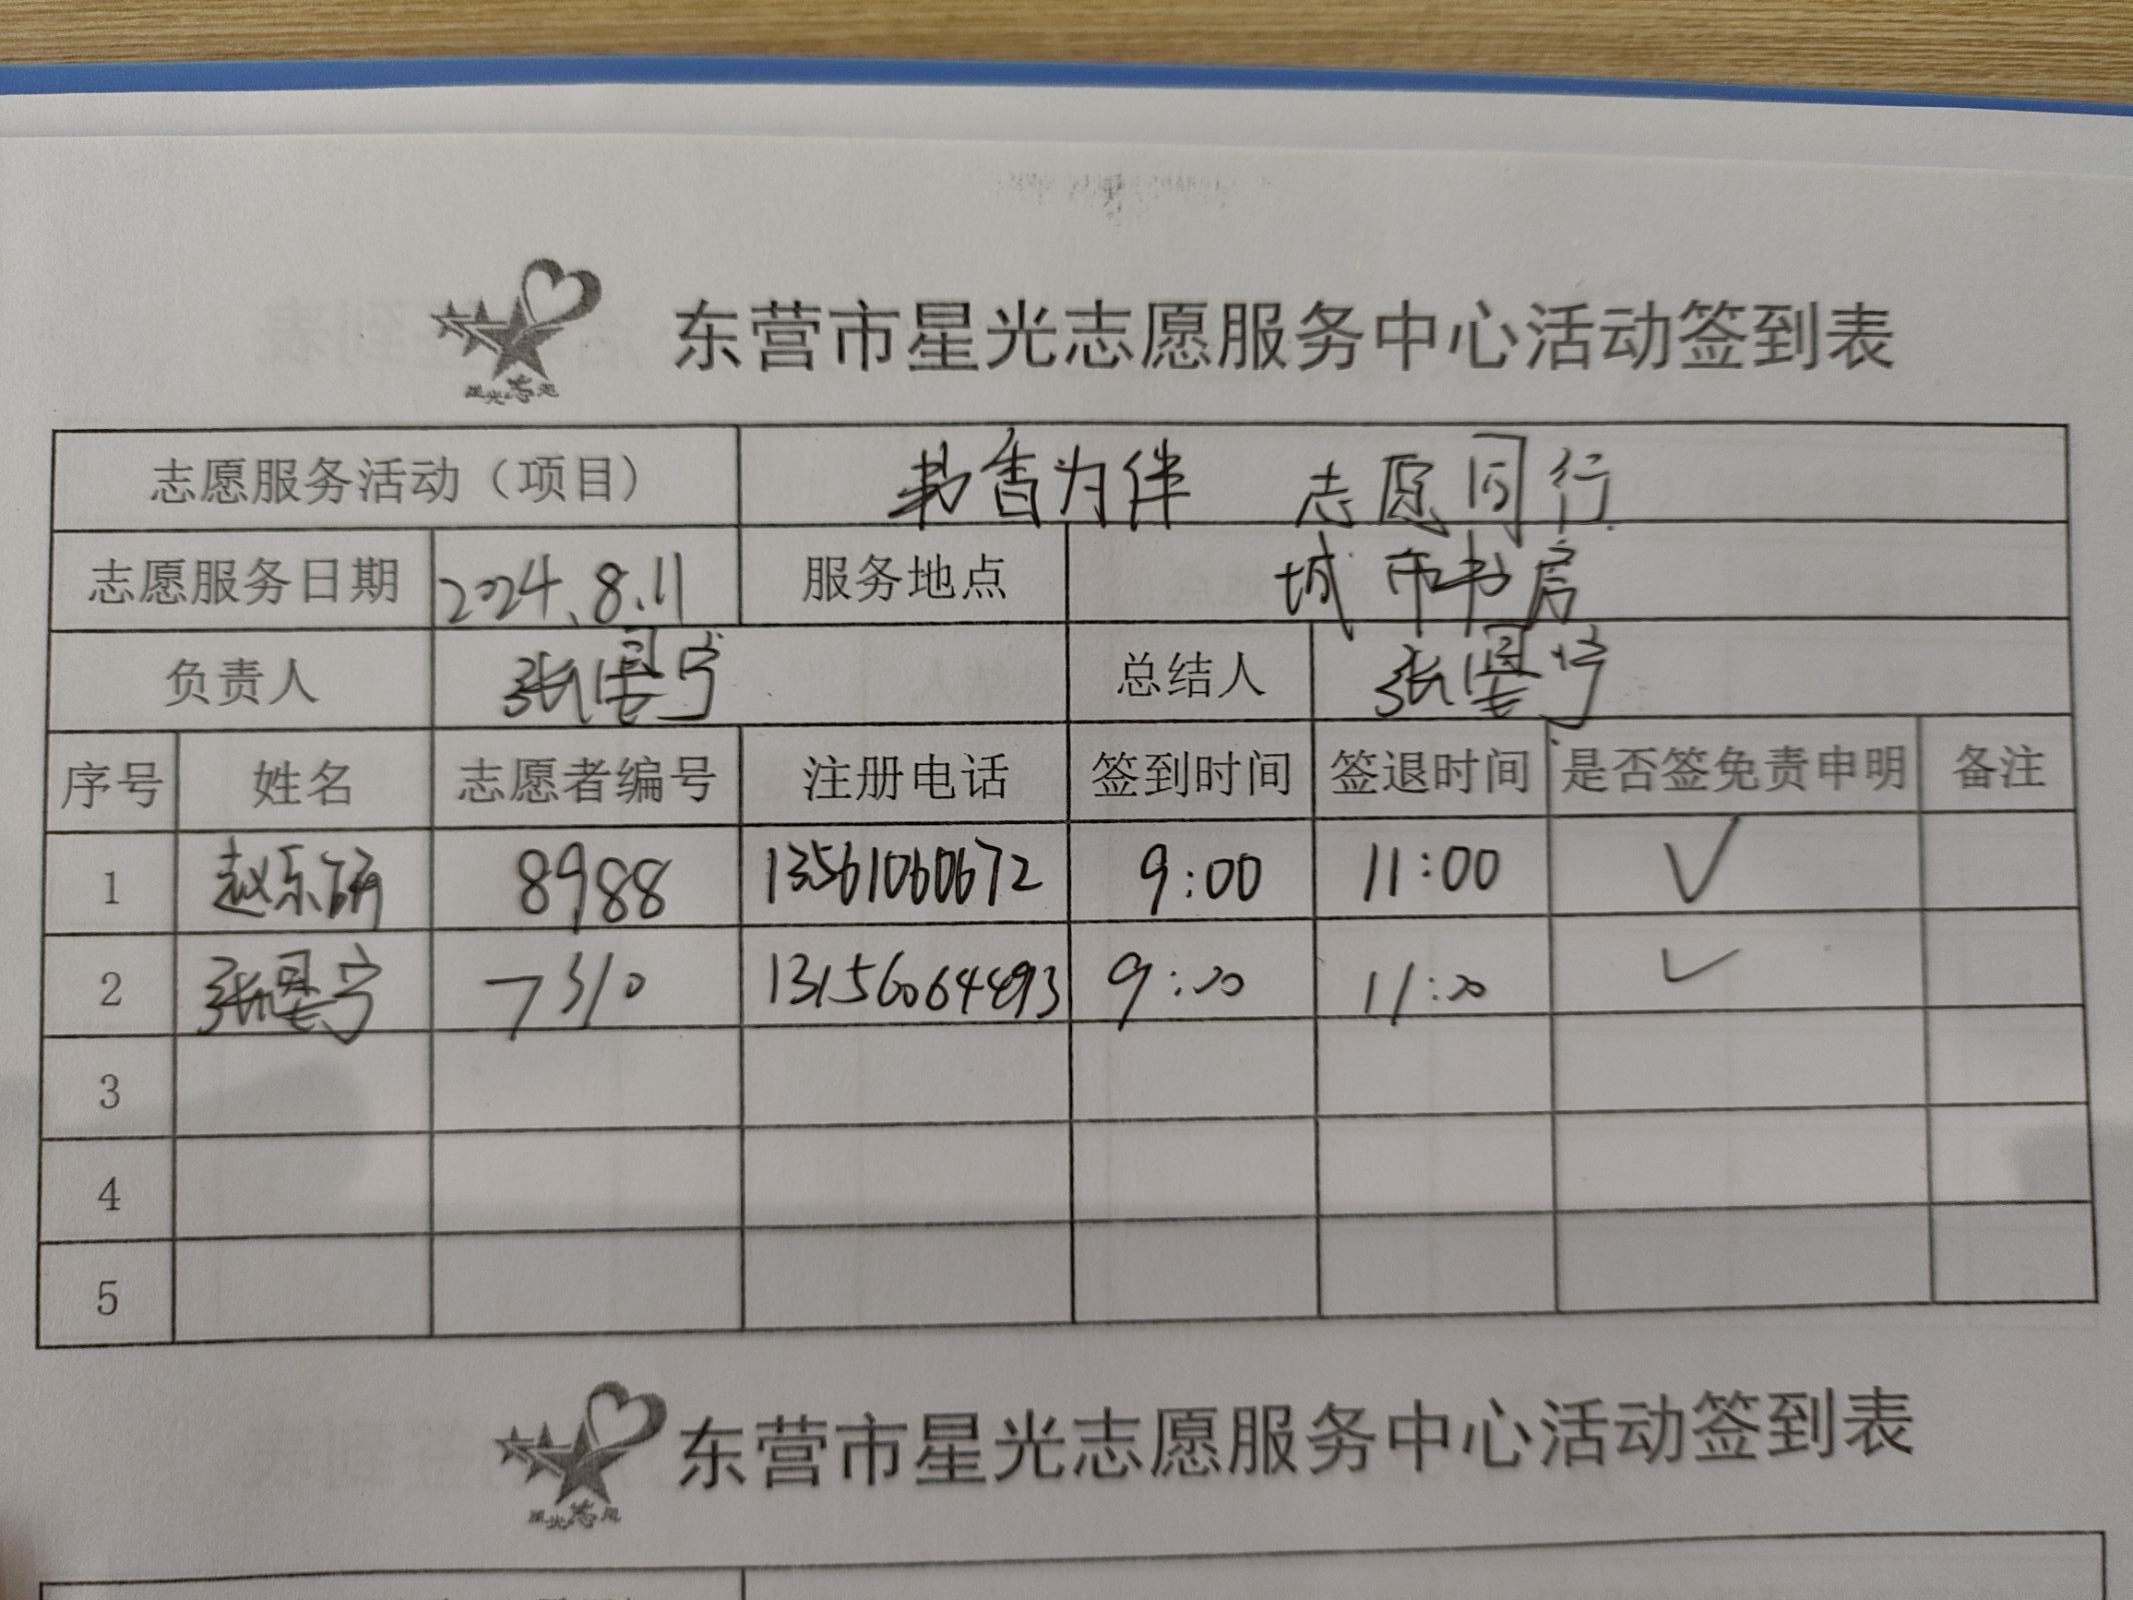 东营市星光志愿服务中心活动签到表
星光志愿
志愿服务活动（项目） 书香为伴 志愿同行
志愿服务日期 2024.8.11 服务地点 城市书房
负责人 张 宁 总结人 张 宁
序号 姓名 志愿者编号 注册电话 签到时间 签退时间 是否签免责申明 备注
1 赵乐妍 8988 13561060672 9:00 11:00 ✓
2 张 宁 7310 13156064493 9:00 11:00 ✓
3
4
5
东营市星光志愿服务中心活动签到表
星光志愿